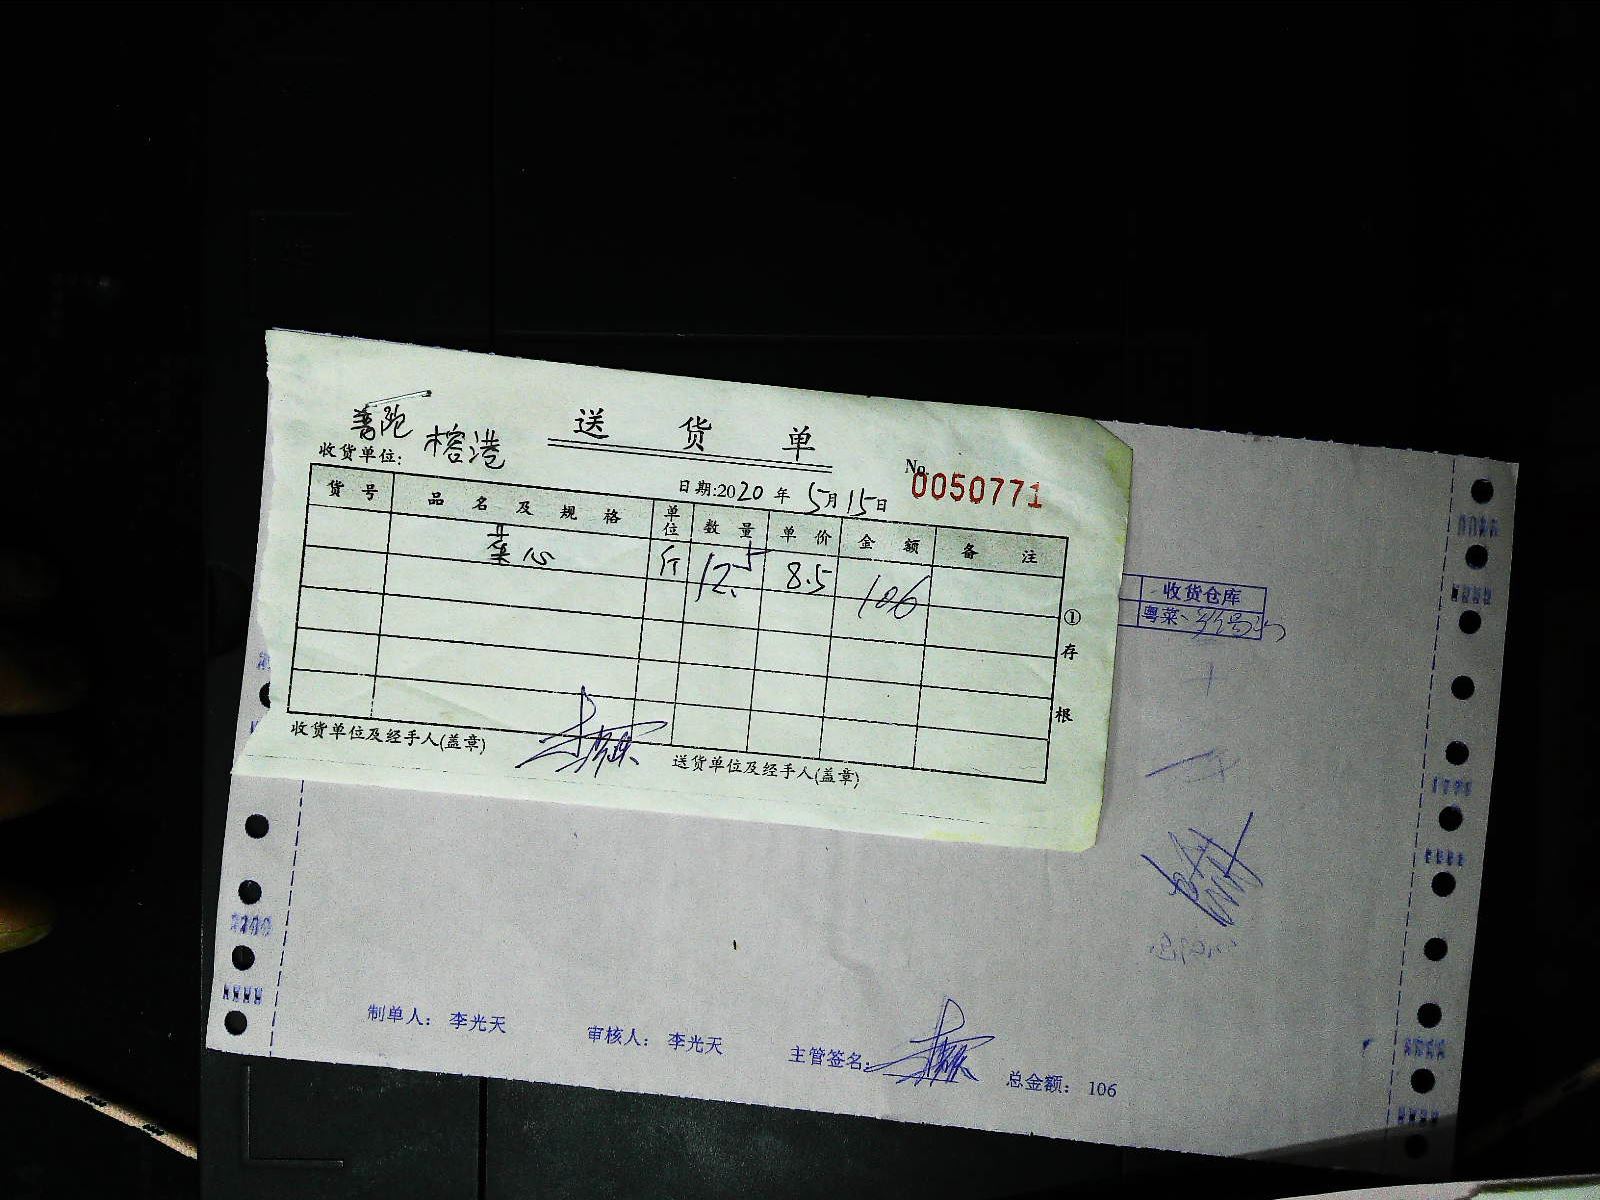 普陀
送货单
收货单位: 榕港
No. 0050771
日期:2020年5月15日
货号 品名及规格 单位 数量 单价 金额 备注
菜心 斤 12.5 8.5 106
①存根
收货单位及经手人(盖章) 送货单位及经手人(盖章)
收货仓库
粤菜
制单人: 李光天 审核人: 李光天 主管签名: 总金额: 106